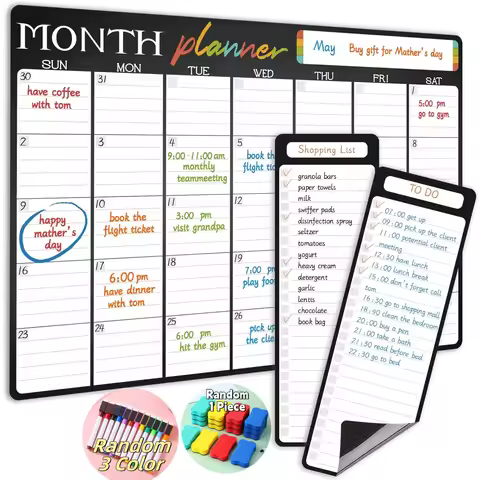 MONTH planner
May Buy gift for Mother's day
SUN MON TUE WED THU FRI SAT
30
have coffee
with tom
31
1
5:00 pm
go to gym
2
3
4
9:00-11:00 am
monthly
teammeeting
5
book the
flight tic
8
9
happy
mather's
day
10
book the
flight ticket
11
3:00 pm
visit grandpa
12
16
17
6:00 pm
have dinner
with tom
18
19
7:00 p
play foo
23
24
25
6:00 pm
hit the gym
26
pick up
the clie
Shopping List
granola bars
paper towels
milk
swiffer pads
disinfection spray
seltzer
tomatoes
yogurt
heavy cream
detergent
garlic
lentis
chocolate
book bag
TO DO
07:00 get up
09:00 pick up the client
11:00 potential client
meeting
12:30 have lunch
13:00 lunch break
15:00 don't forget call
tom
16:30 go to shopping mall
18:30 clean the bedroom
20:00 buy a pen
21:00 take a bath
21:30 read before bed
22:30 go to bed
Random
3 Color
Random
1 Piece